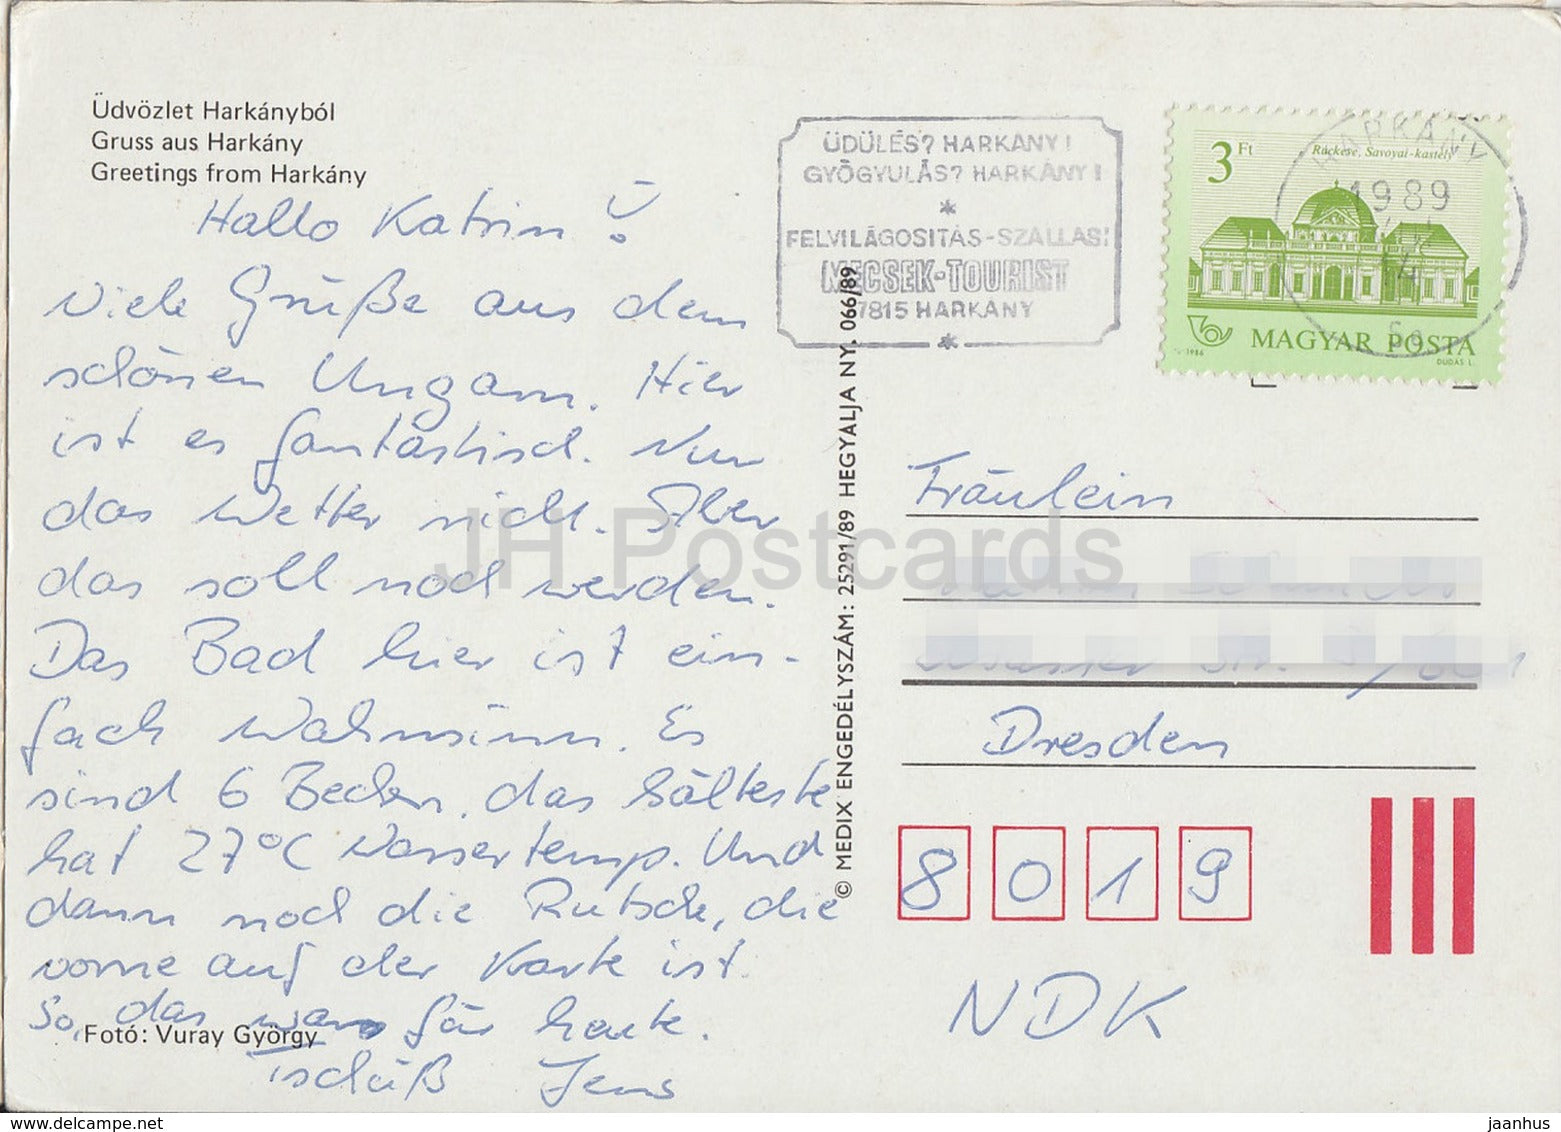 Üdvözlet Harkányból
Gruss aus Harkány
Greetings from Harkány
Hallo Katrin !
viele Grüße aus dem
schönen Ungarn. Hier
ist es fantastisch. Nur
das Wetter nicht. Aber
das soll noch werden.
Das Bad hier ist ein-
fach Wahnsinn. Es
sind 6 Becken, das kälteste
hat 27°C Wassertemp. Und
dann noch die Rutsche, die
vorne auf der Karte ist.
So, das wars für heute.
Fotó: Vuray György
Tschüß Jens
© MEDIX ENGEDÉLYSZÁM: 25291/89 HEGYALJA NY. 066/89
ÜDÜLÉS? HARKÁNY!
GYÓGYULÁS? HARKÁNY!
*
FELVILÁGOSITÁS-SZÁLLÁS:
MECSEK-TOURIST
7815 HARKÁNY
*
3 Ft
Ráckeve, Savoyai-kastély
HARKÁNY
1989
14
1986
MAGYAR POSTA
DUDÁS L.
Fräulein
Dresden
8019
NDK
JH Postcards
www.delcampe.net
jaanhus